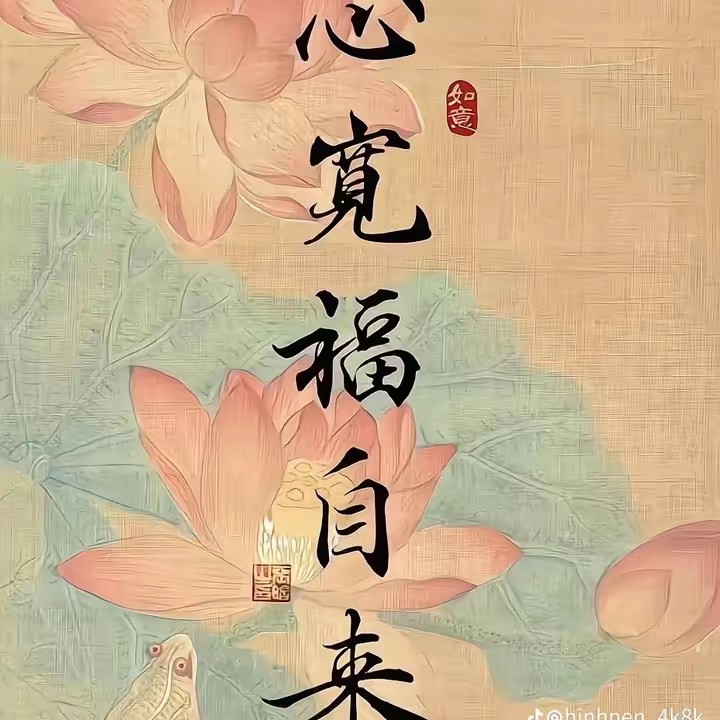 心寛福自来
如意
@hinhnen_4k8k